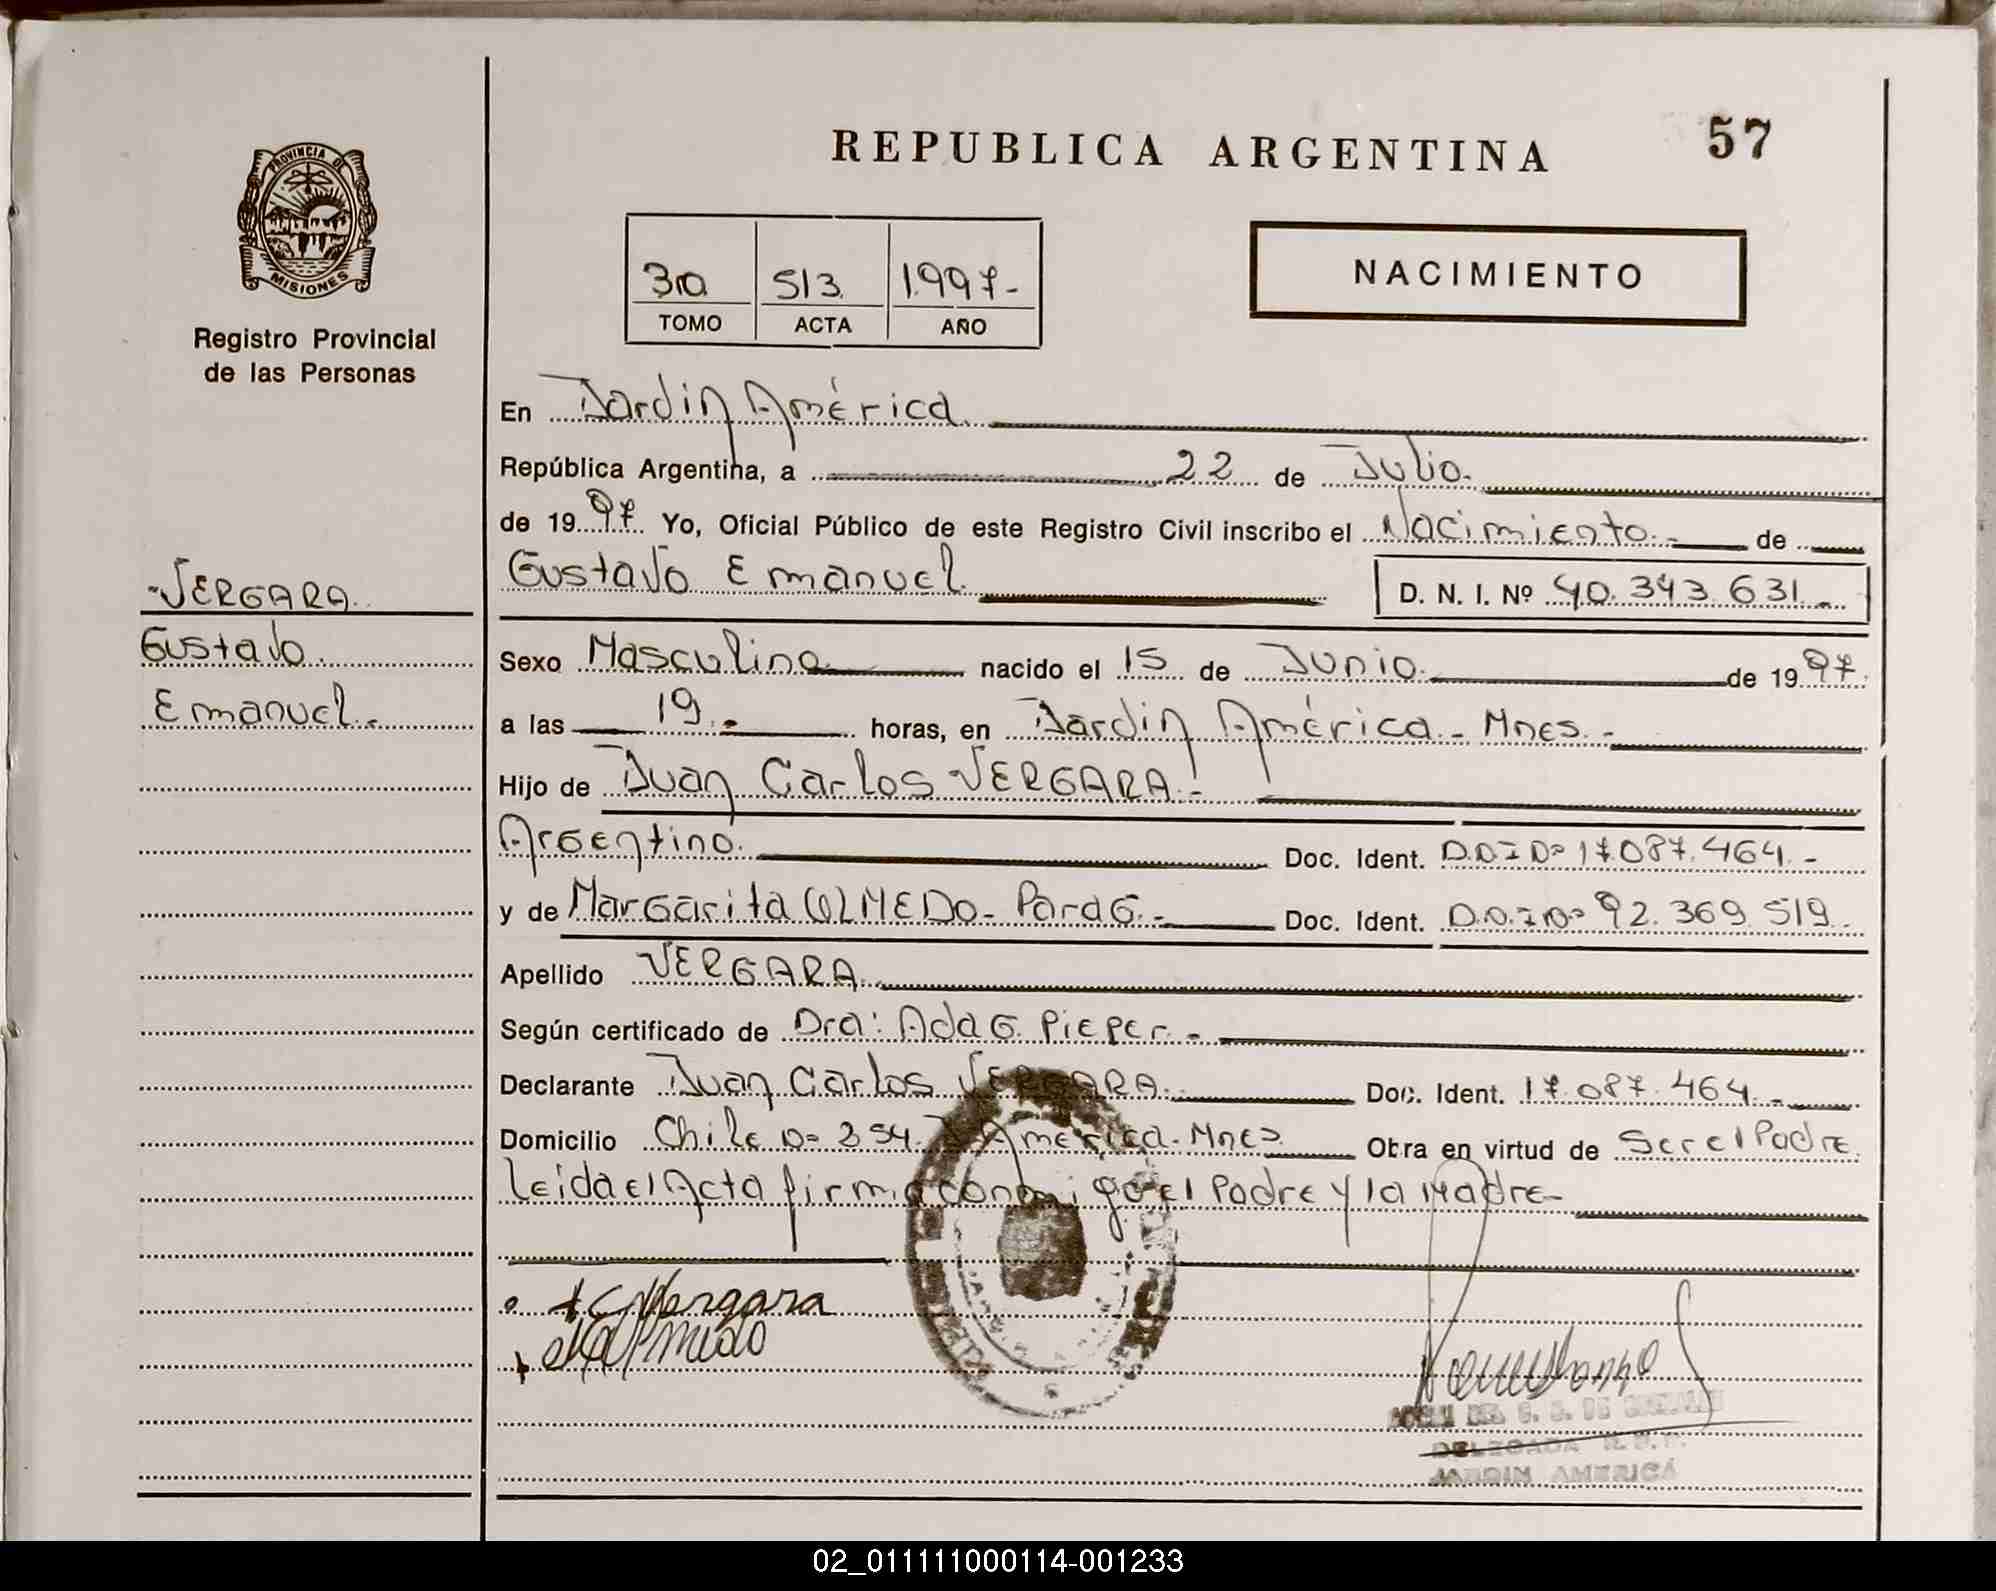 PROVINCIA DE
MISIONES
Registro Provincial
de las Personas
VERGARA
Gustavo
Emanuel.-
REPUBLICA ARGENTINA
57
3ro 513 1.997-
TOMO ACTA AÑO
NACIMIENTO
En Jardin América.
República Argentina, a 22 de Julio.
de 1997 Yo, Oficial Público de este Registro Civil inscribo el Nacimiento.- de
Gustavo Emanuel. D. N. I. Nº 40.343.631.-
Sexo Masculino nacido el 15 de Junio. de 1997.
a las 19.- horas, en Jardin América.- Mnes.-
Hijo de Juan Carlos VERGARA.-
Argentino. Doc. Ident. D.N.I Nº 17.087.464.-
y de Margarita OLMEDO- Parag.- Doc. Ident. D.N.I Nº 92.369.519.-
Apellido VERGARA.
Según certificado de Dra: Ada G. Pieper.-
Declarante Juan Carlos VERGARA. Doc. Ident. 17.087.464.-
Domicilio Chile Nº 354. J. América.- Mnes. Obra en virtud de Ser el Padre
Leida el Acta firma conmigo el Padre y la Madre-
J C Vergara
Olmedo
DELEGADA R.P.P.
JARDIN AMERICA
02_011111000114-001233